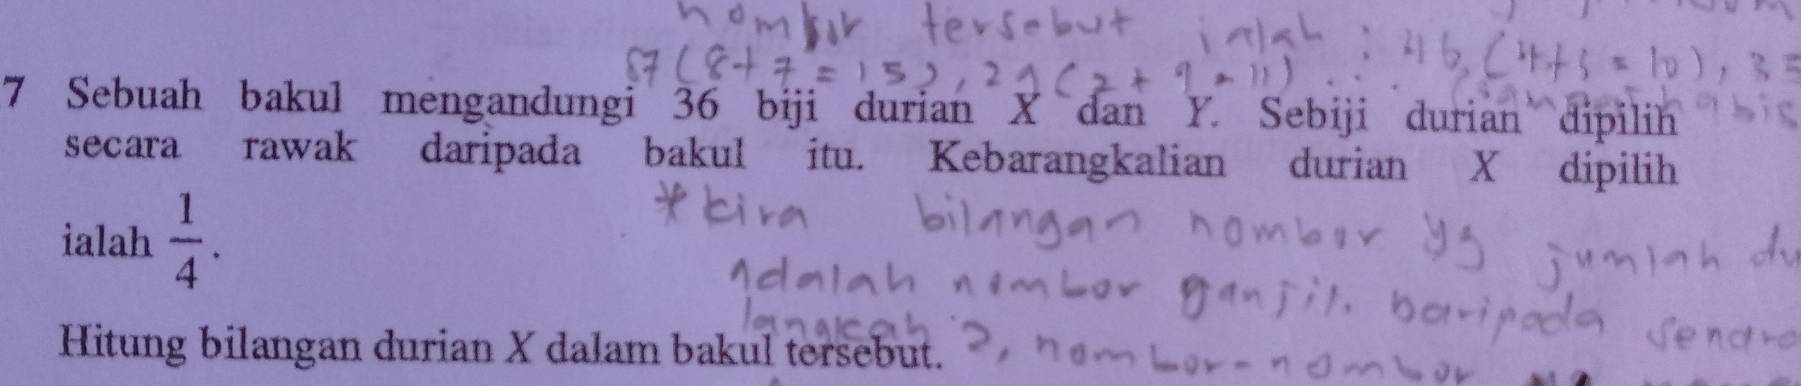 nombor tersebut ialah : 46 (4+6 = 10), 35
87 (8+7 = 15), 29 (2+9 = 11)
7 Sebuah bakul mengandungi 36 biji durian X dan Y. Sebiji durian dipilih
secara rawak daripada bakul itu. Kebarangkalian durian X dipilih
*kira bilangan nombor yg jumlah
ialah 1/4.
adalah nombor ganjil. baripada
langkah 2, nombor-nombor
Hitung bilangan durian X dalam bakul tersebut.